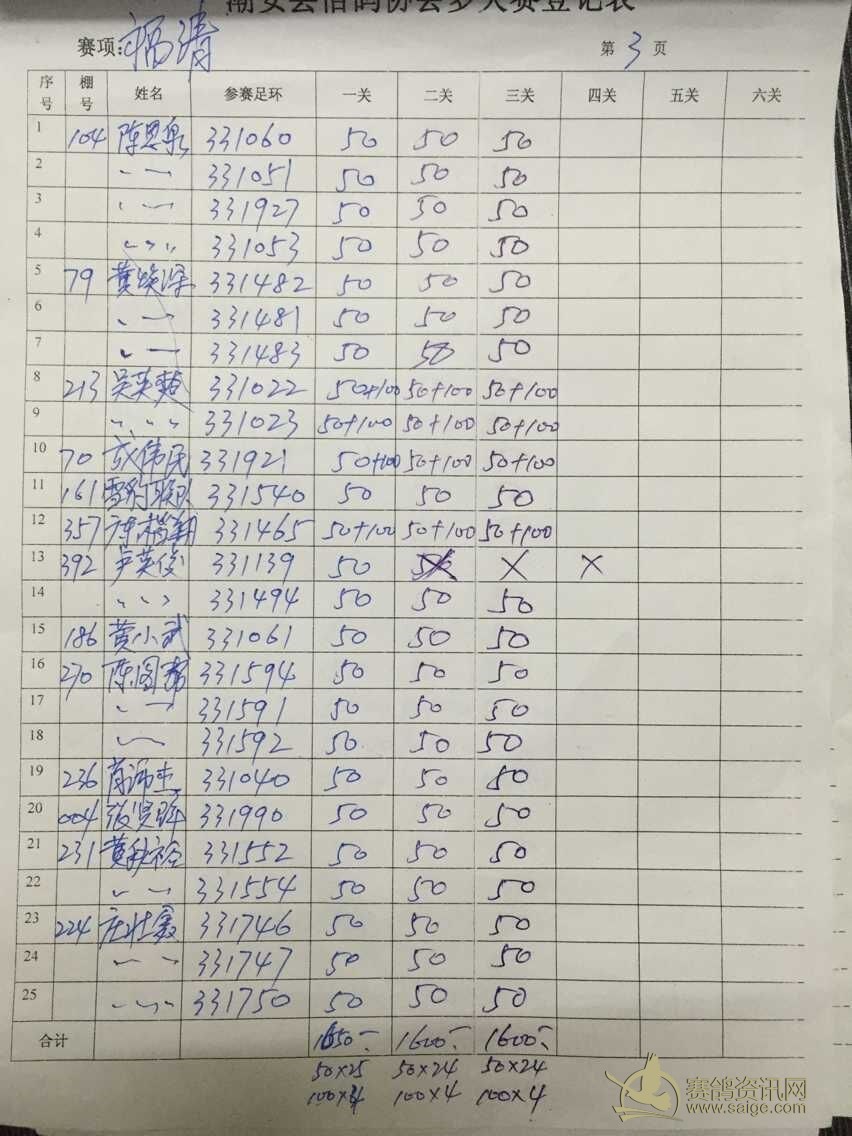 潮安县信鸽协会多关赛登记表
赛项:福清 第3页
序号 棚号 姓名 参赛足环 一关 二关 三关 四关 五关 六关
1 104 陈恩泉 331060 50 50 50
2 331051 50 50 50
3 331927 50 50 50
4 331053 50 50 50
5 79 331482 50 50 50
6 331481 50 50 50
7 331483 50 50 50
8 213 331022 50+100 50+100 50+100
9 331023 50+100 50+100 50+100
10 70 331921 50+100 50+100 50+100
11 161 331540 50 50 50
12 357 331465 50+100 50+100 50+100
13 392 卢英俊 331139 50 50 X X
14 331494 50 50 50
15 186 黄小武 331061 50 50 50
16 270 331594 50 50 50
17 331591 50 50 50
18 331592 50 50 50
19 236 331040 50 50 50
20 004 331990 50 50 50
21 231 331552 50 50 50
22 331554 50 50 50
23 224 331746 50 50 50
24 331747 50 50 50
25 331750 50 50 50
合计 1650- 1600- 1600-
50×25 50×24 50×24
100×4 100×4 100×4
赛鸽资讯网
www.saige.com